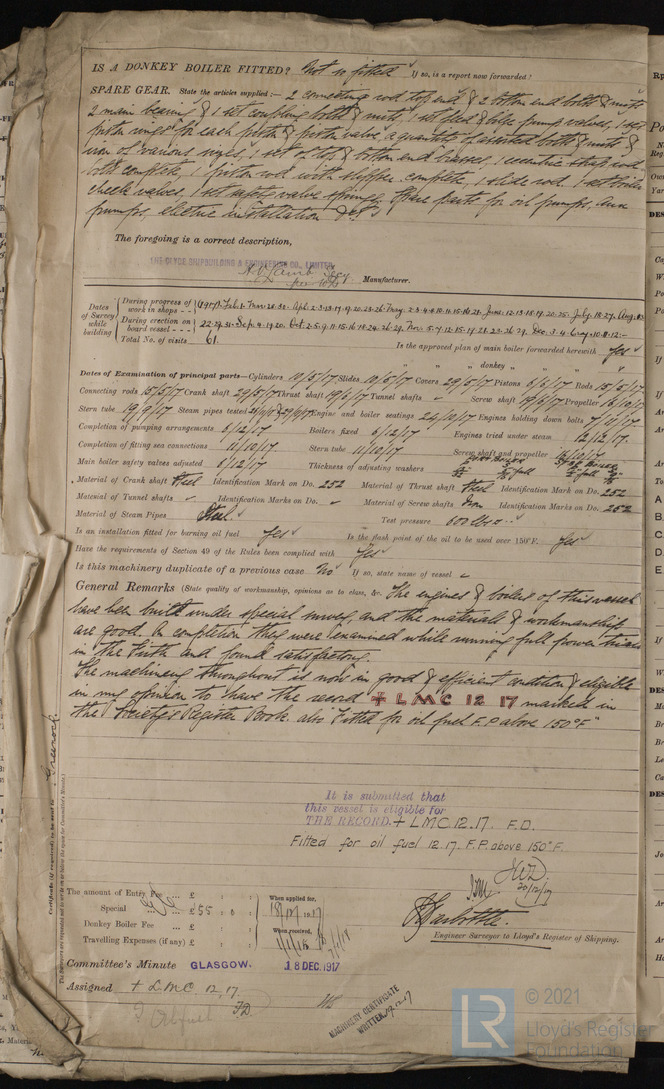 IS A DONKEY BOILER FITTED? Not is fitted If so, is a report now forwarded?
SPARE GEAR. State the articles supplied :— 2 connecting rod top end & 2 bottom end bolts & nuts
2 main bearing & 1 set coupling bolts & nuts, 1 set feed & bilge pump valves, 1 set
piston rings for each piston & piston valve a quantity of assorted bolts & nuts &
iron of various sizes, 1 set of top & bottom end brasses, 1 eccentric strap and
complete, 1 piston rod with slipper complete, 1 slide rod. 1 set boiler
check valves. 1 set safety valve springs. Spare parts for oil pumps,
pumps, electric installation
The foregoing is a correct description,
THE CLYDE SHIPBUILDING & ENGINEERING CO., LIMITED
Manufacturer.
Dates of Survey while building
During progress of work in shops - -
During erection on board vessel - - -
Total No. of visits 61.
Is the approved plan of main boiler forwarded herewith Yes
" " " donkey " " "
Dates of Examination of principal parts—Cylinders 10/5/17 Slides 10/5/17 Covers 29/5/17 Pistons 6/6/17 Rods 15/5/17
Connecting rods 15/5/17 Crank shaft 29/5/17 Thrust shaft 19/6/17 Tunnel shafts - Screw shaft 19/6/17 Propeller 16/10/17
Stern tube 19/9/17 Steam pipes tested Engine and boiler seatings 24/10/17 Engines holding down bolts 7/11/17
Completion of pumping arrangements 6/12/17 Boilers fixed 6/12/17 Engines tried under steam 12/12/17.
Completion of fitting sea connections 11/10/17 Stern tube 11/10/17 Screw shaft and propeller 16/10/17
Main boiler safety valves adjusted 6/12/17 Thickness of adjusting washers
Material of Crank shaft Steel Identification Mark on Do. 252 Material of Thrust shaft Steel Identification Mark on Do. 252
Material of Tunnel shafts - Identification Marks on Do. - Material of Screw shafts Iron Identification Marks on Do. 252
Material of Steam Pipes Steel. Test pressure 600 lbs
Is an installation fitted for burning oil fuel Yes Is the flash point of the oil to be used over 150°F. Yes
Have the requirements of Section 49 of the Rules been complied with Yes
Is this machinery duplicate of a previous case No If so, state name of vessel -
General Remarks (State quality of workmanship, opinions as to class, &c. The engines & boilers of this vessel
have been built under special survey, and the materials & workmanship
are good. On completion they were examined while running full power trials
in the Firth and found satisfactory.
The machinery throughout is now in good & efficient condition & eligible
in my opinion to have the record + LMC 12 17 marked in
the Society's Register Book. also "Fitted for oil fuel F.P above 150°F"
It is submitted that
this vessel is eligible for
THE RECORD. + LMC 12.17. F.D.
Fitted for oil fuel 12.17. F.P. above 150°F.
20/12/17
The amount of Entry Fee ... £ : :
Special ... £ 55 : 0 :
Donkey Boiler Fee ... £ : :
Travelling Expenses (if any) £ : :
When applied for,
When received,
Engineer Surveyor to Lloyd's Register of Shipping.
Committee's Minute GLASGOW. 18 DEC. 1917
Assigned + LMC 12,17.
FD
MACHINERY CERTIFICATE
WRITTEN
Certificate (if required) to be sent to Greenock
© 2021
LR
Lloyd's Register
Foundation